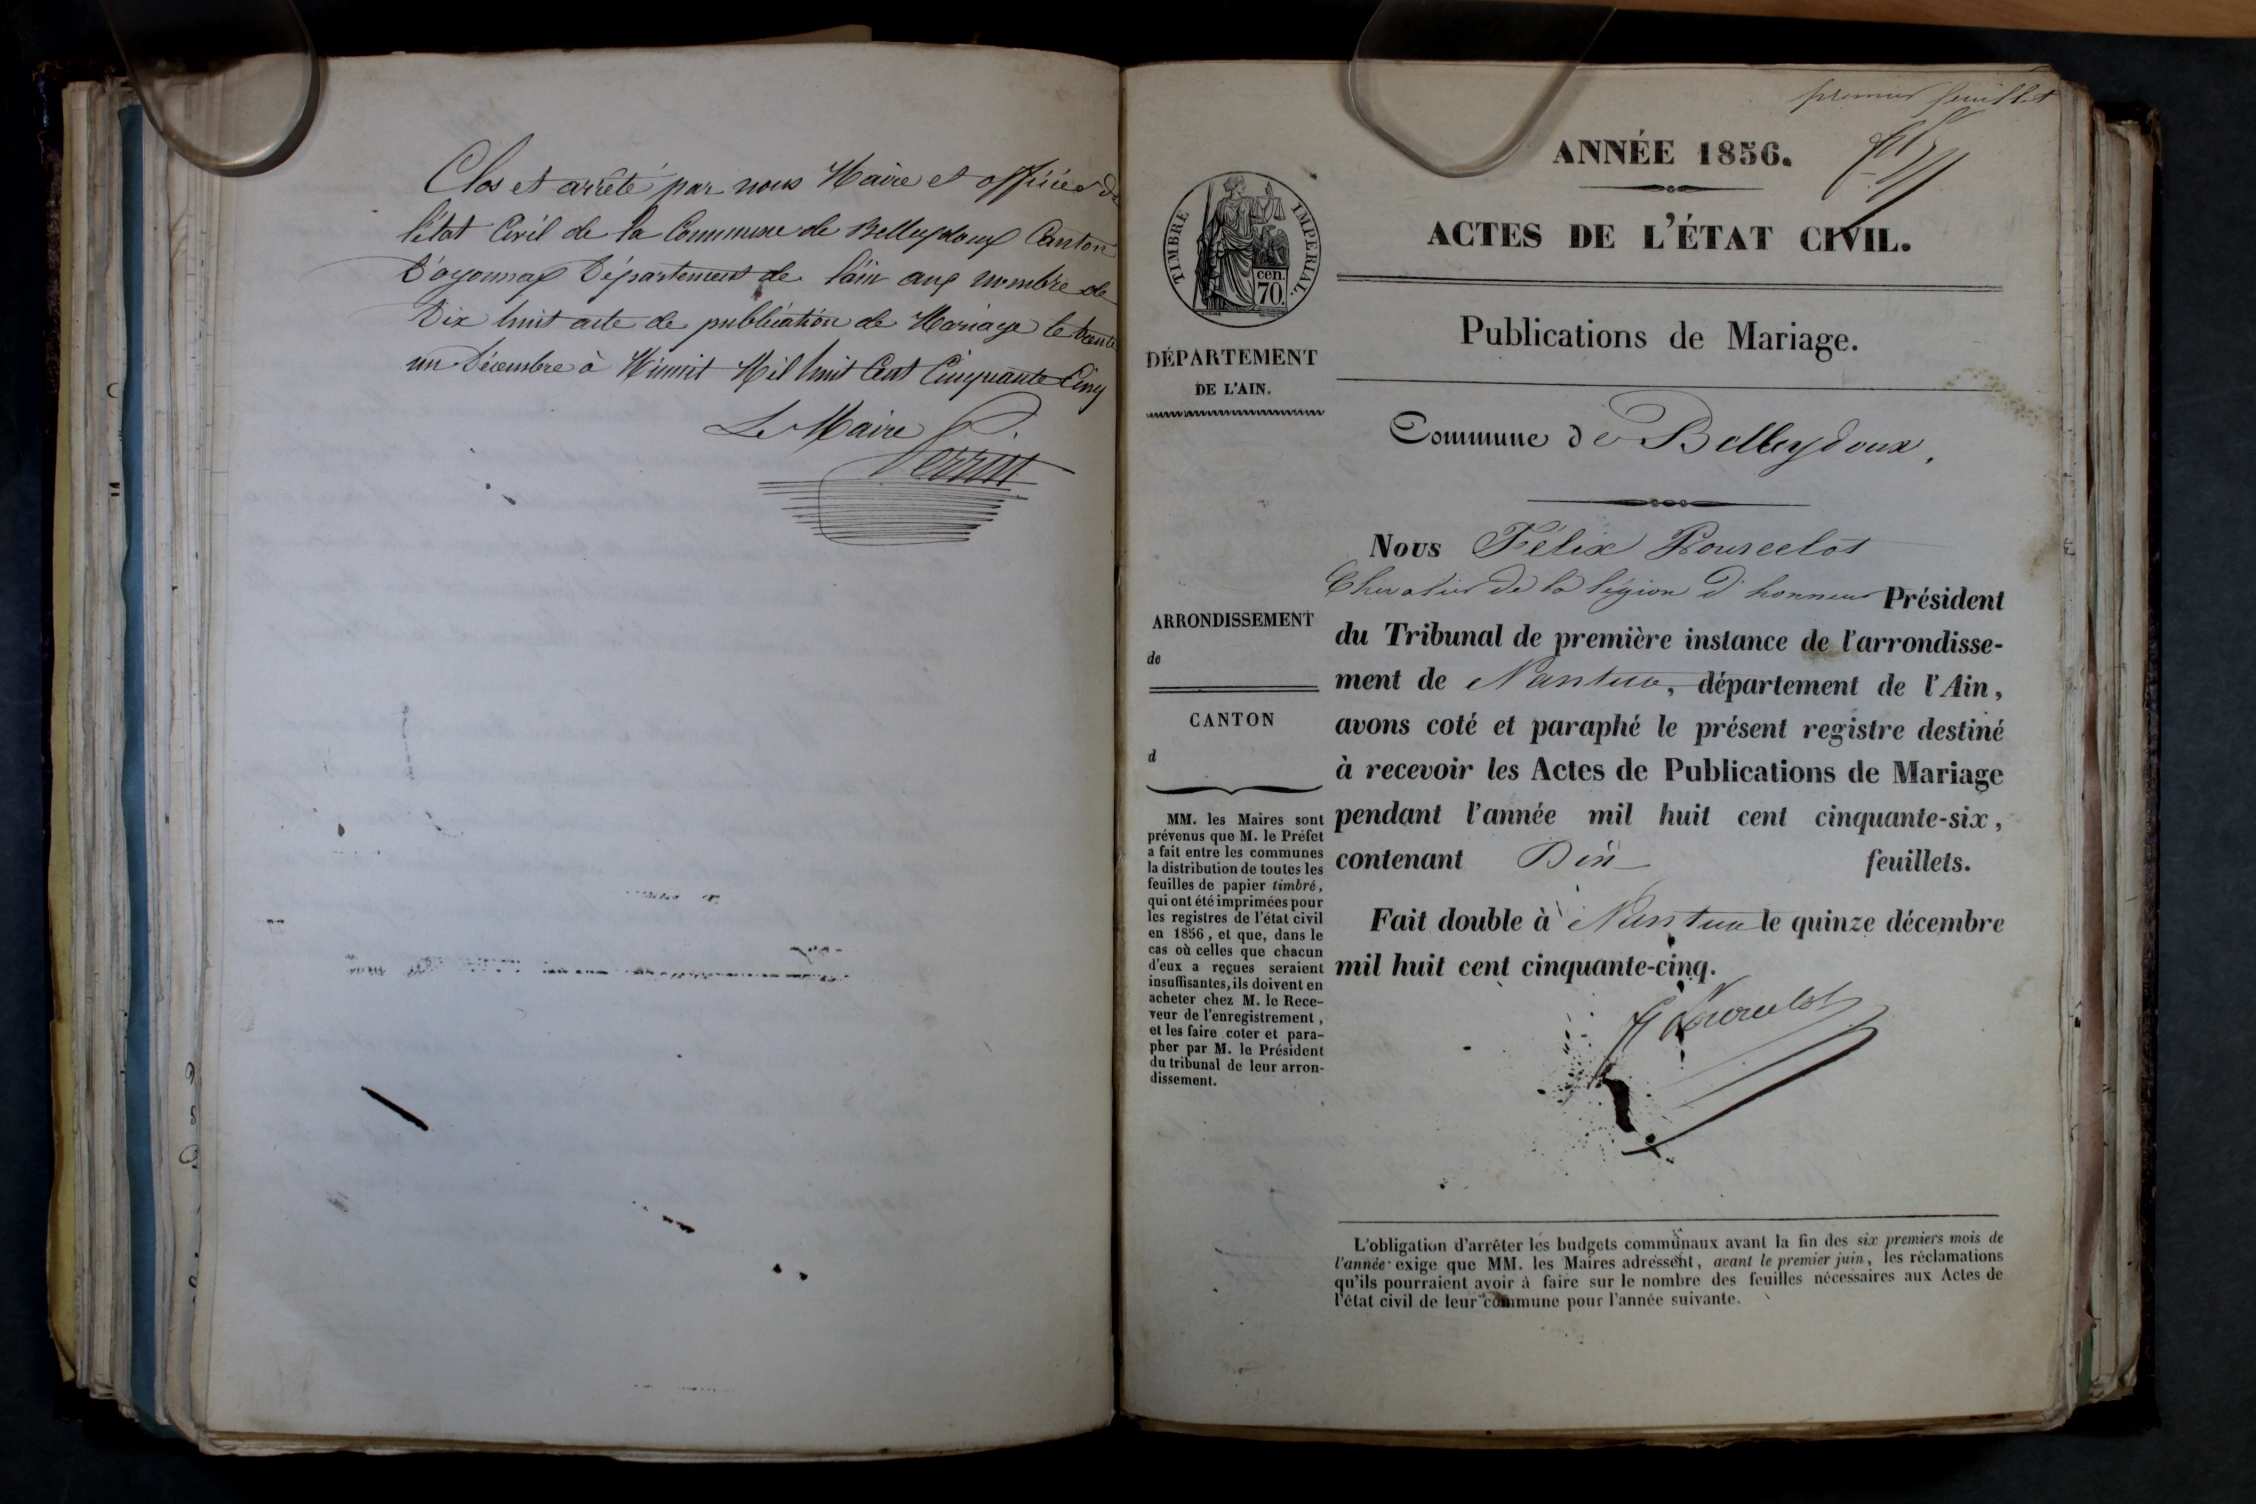 Clos et arrêté par nous Maire et officier de
l'état Civil de la Commune de Belleydoux Canton
d'oyonnax Département de l'ain aux nombre de
Dix huit acte de publication de Mariage le trente
un Décembre à Minuit Mil huit Cent Cinquante Cinq
Le Maire
Perrin
premier feuillet
ANNÉE 1856.
ACTES DE L'ÉTAT CIVIL.
Publications de Mariage.
TIMBRE IMPERIAL.
cen.
70.
DÉPARTEMENT
DE L'AIN.
Commune de Belleydoux.
Nous Félix Pourcelot
Chevalier de la légion d'honneur Président
du Tribunal de première instance de l'arrondisse-
ment de Nantua, département de l'Ain,
avons coté et paraphé le présent registre destiné
à recevoir les Actes de Publications de Mariage
pendant l'année mil huit cent cinquante-six,
contenant Dix feuillets.
Fait double à Nantua le quinze décembre
mil huit cent cinquante-cinq.
F Pourcelot
ARRONDISSEMENT
de
CANTON
d
MM. les Maires sont
prévenus que M. le Préfet
a fait entre les communes
la distribution de toutes les
feuilles de papier timbré,
qui ont été imprimées pour
les registres de l'état civil
en 1856, et que, dans le
cas où celles que chacun
d'eux a reçues seraient
insuffisantes, ils doivent en
acheter chez M. le Rece-
veur de l'enregistrement,
et les faire coter et para-
pher par M. le Président
du tribunal de leur arron-
dissement.
L'obligation d'arrêter les budgets communaux avant la fin des six premiers mois de
l'année exige que MM. les Maires adressent, avant le premier juin, les réclamations
qu'ils pourraient avoir à faire sur le nombre des feuilles nécessaires aux Actes de
l'état civil de leur commune pour l'année suivante.